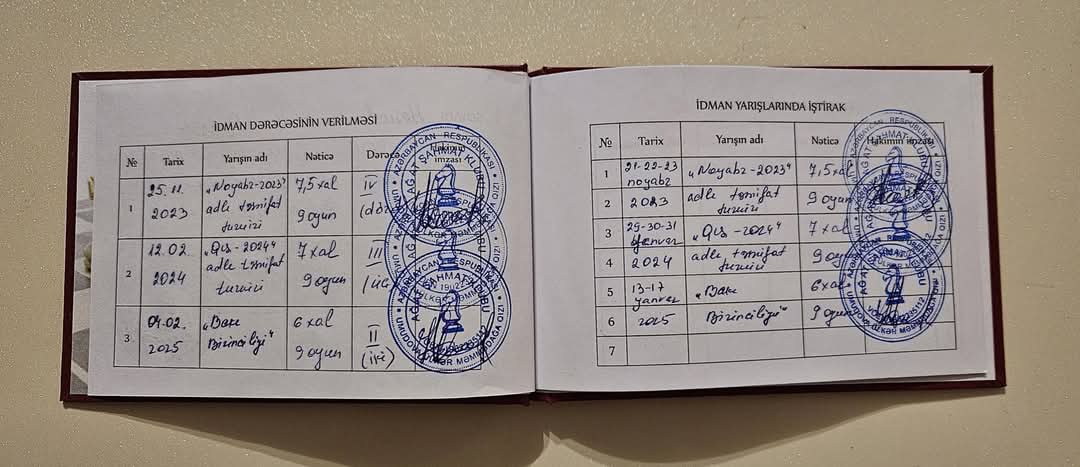 İDMAN DƏRƏCƏSİNİN VERİLMƏSİ
№ Tarix Yarışın adı Nəticə Dərəcə Hakimin imzası
1 25.11.2023 „Noyabr-2023" adlı təsnifat turniri 7,5 xal 9 oyun IV
2 12.02 2024 „Qış-2024" adlı təsnifat turniri 7 xal 9 oyun III (üç)
3 04.02. 2025 „Bakı Birinciliyi" 6 xal 9 oyun II (iki)
AZƏRBAYCAN RESPUBLİKASI
AĞAT ŞAHMAT KLUBU
İDMAN YARIŞLARINDA İŞTİRAK
№ Tarix Yarışın adı Nəticə Hakimin imzası
1 21-22-23 noyabr „Noyabr-2023" 7,5 xal
2 2023 adlı təsnifat turniri 9 oyun
3 29-30-31 Yanvar „Qış-2024" 7 xal
4 2024 adlı təsnifat turniri 9 oyun
5 13-17 yanvar „Bakı 6 xal
6 2025 Birinciliyi" 9 oyun
7
AZƏRBAYCAN RESPUBLİKASI
AĞAT ŞAHMAT KLUBU